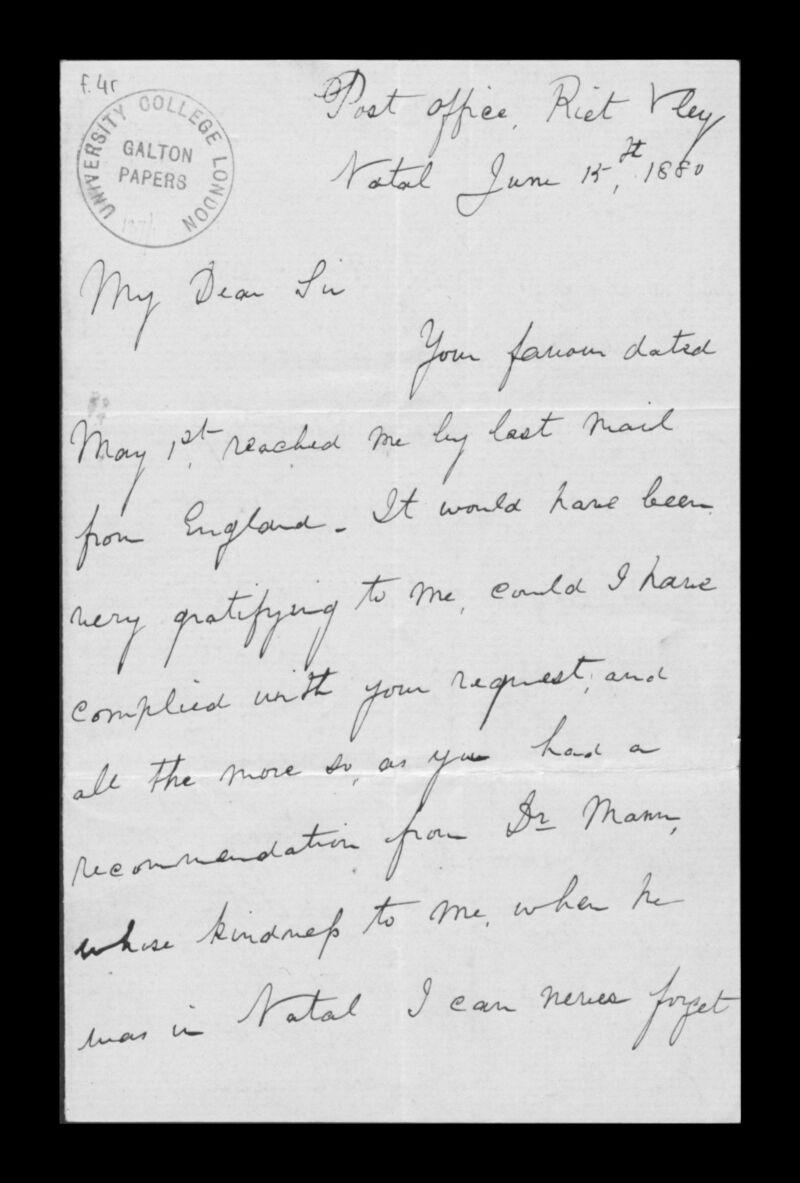 f. 4r
UNIVERSITY COLLEGE LONDON
GALTON
PAPERS
Post office, Riet Vley
Natal June 15th, 1880
My Dear Sir
Your favour dated
May 1st, reached me by last mail
from England. It would have been
very gratifying to me, could I have
complied with your request; and
all the more so, as you had a
recommendation from Dr Mann,
whose kindness to me, when he
was in Natal I can never forget